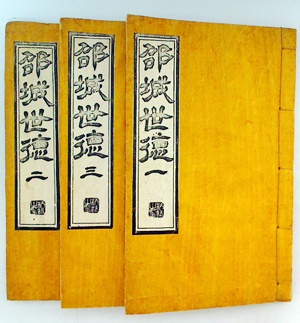 邵城世德一
邵城世德三
邵城世德二